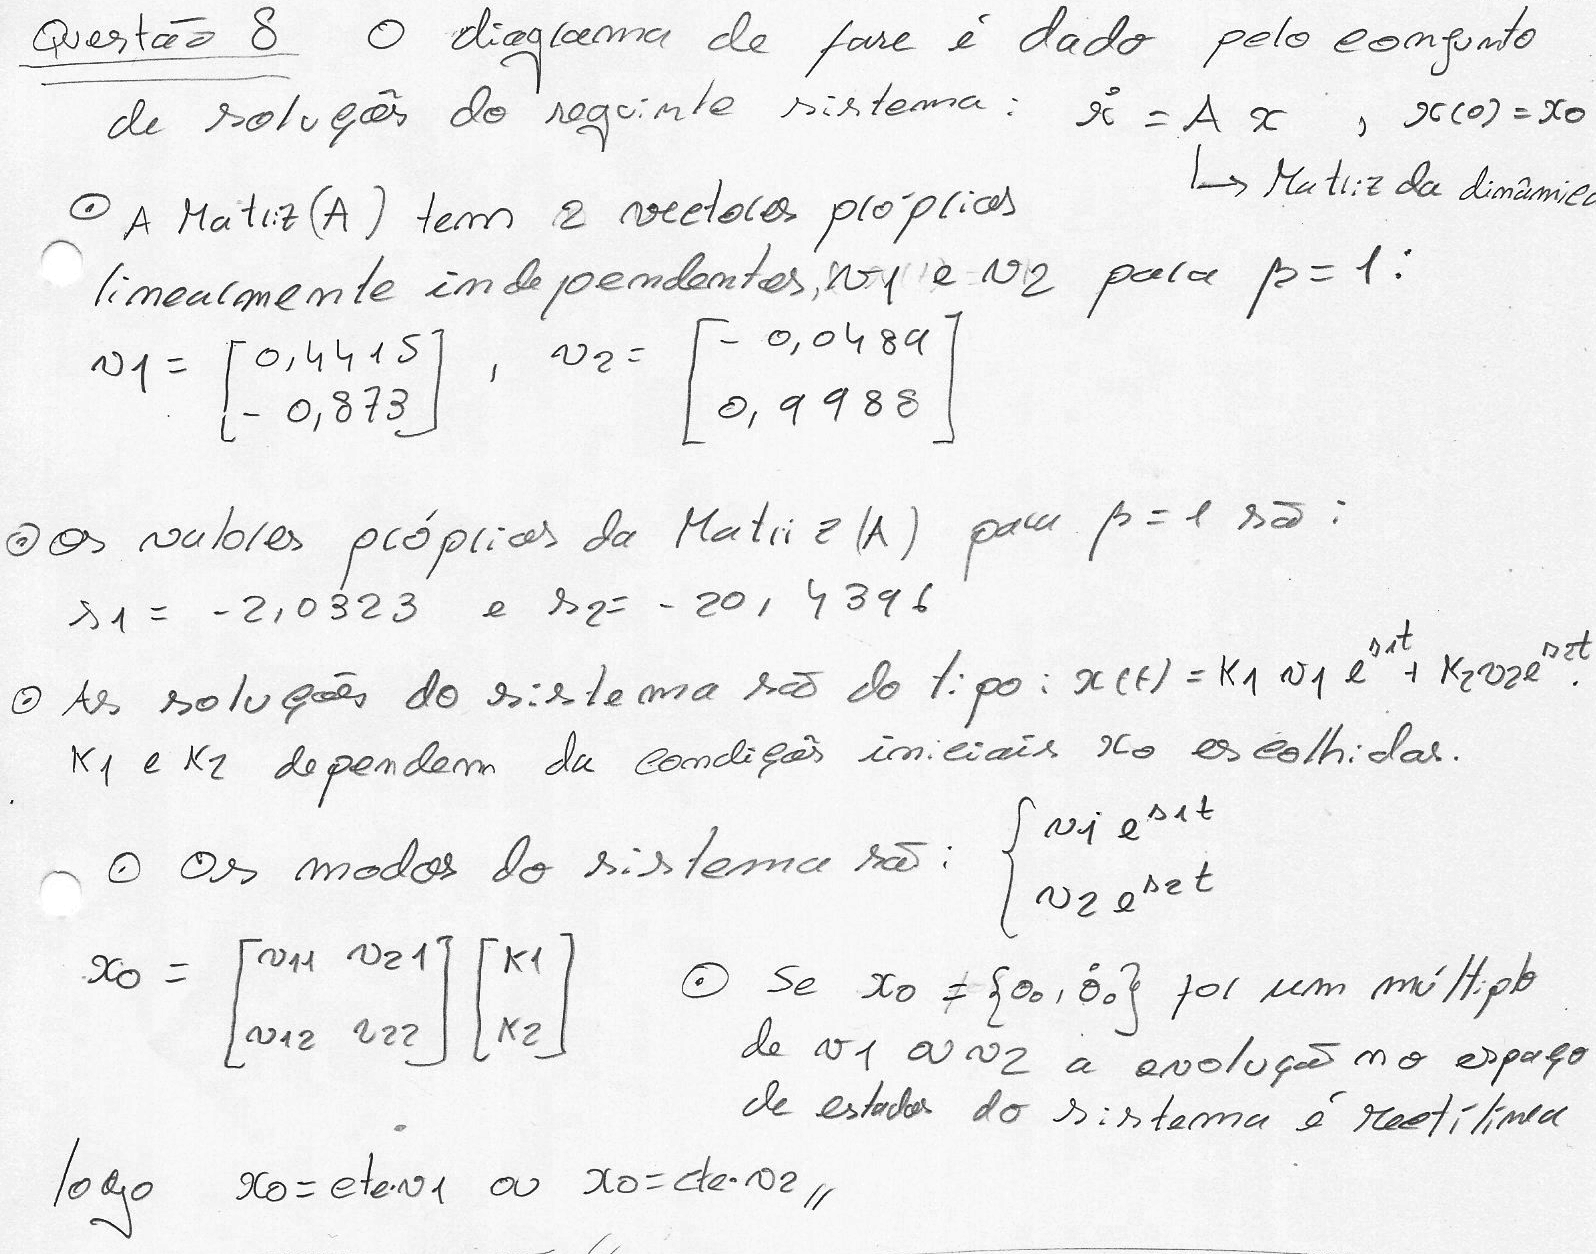 Questão 8 O diagrama de fase é dado pelo conjunto
de soluções do seguinte sistema: ẋ = A x , x(0) = x0
↳ Matriz da dinâmica
⊙ A Matriz (A) tem 2 vectores próprios
linearmente independentes, v1 e v2 para β = 1:
v1 = [0,4415 - 0,873] , v2 = [- 0,0489 0,9988]
⊙ Os valores próprios da Matriz (A) para β = 1 são:
s1 = -2,0323 e s2 = -20,4396
⊙ As soluções do sistema são do tipo: x(t) = K1 v1 e^s1t + K2 v2 e^s2t.
K1 e K2 dependem da condições iniciais x0 escolhidas.
⊙ Os modos do sistema são: { v1 e^s1t
v2 e^s2t
x0 = [v11 v21 v12 v22] [K1 K2]
⊙ Se x0 = {θ0, θ̇0} for um múltiplo
de v1 ou v2 a evolução no espaço
de estados do sistema é rectilínea
logo x0 = cte.v1 ou x0 = cte.v2 //